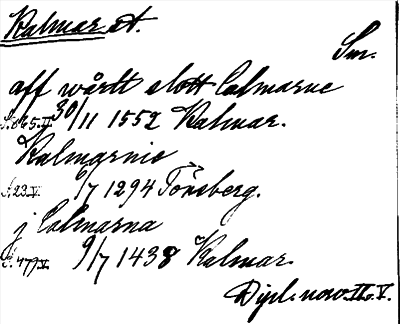 Kalmar st.
Sm.
aff wårtt slott Calmarne
S. 865. II. 30/11 1552 Kalmar.
Kalmarnis
S. 23. V. 6/7 1294 Tönsberg.
j Calmarna
S. 477. V. 9/7 1438 Kalmar.
Dipl. nov. II o. V.